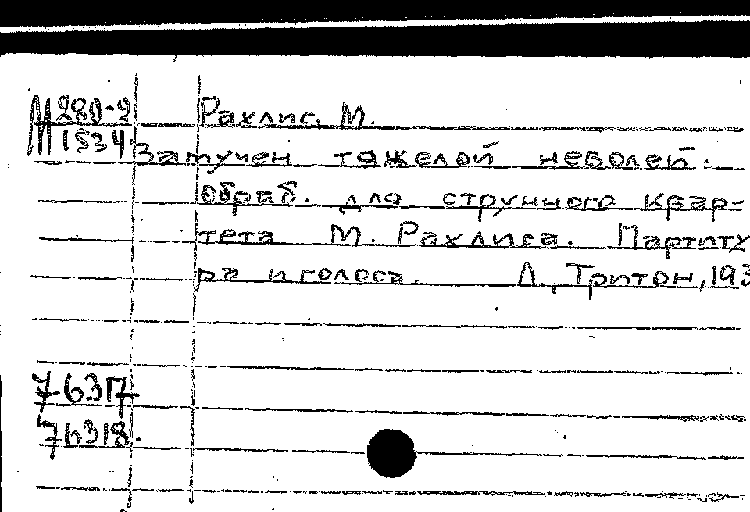 М280-2 Рахлис, М.
М1534
Замучен тяжелой неволей.
Обраб. для струнного квар-
тета М. Рахлиса. Партиту
ра и голоса. Л., Тритон, 193
76317
76318.